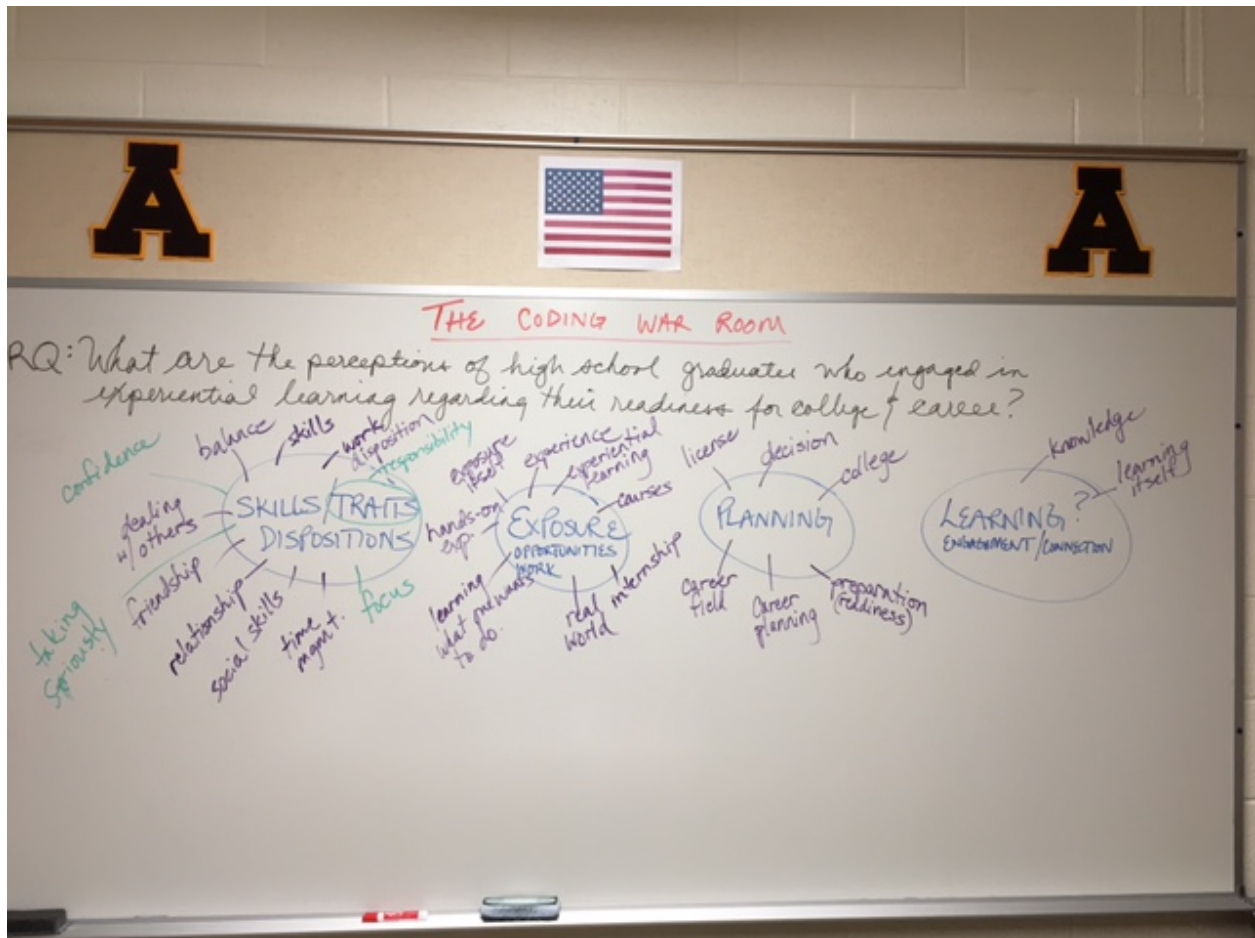 A
A
THE CODING WAR ROOM
RQ: What are the perceptions of high school graduates who engaged in
experiential learning regarding their readiness for college & career?
confidence
balance
skills
work
disposition
responsibility
dealing
w/ others
SKILLS/TRAITS
DISPOSITIONS
taking
seriously
friendship
relationship
social skills
time
mgmt.
focus
exposure
itself
experience
experiential
learning
courses
hands-on
exp.
EXPOSURE
OPPORTUNITIES
WORK
learning
what one wants
to do.
real
world
internship
license
decision
college
PLANNING
career
field
career
planning
preparation
(readiness)
knowledge
learning
itself
LEARNING?
ENGAGEMENT/CONNECTION